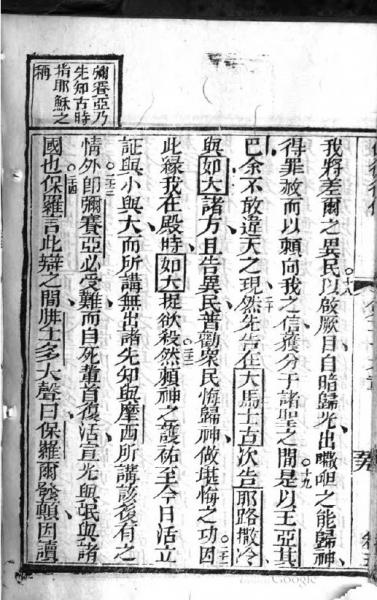 我將差爾之異民○十八以啟厥目自暗歸光出呾之能歸神
得罪赦而以賴向我之信獲分于諸聖之間○十九是以王亞其
巴余不敢違天之現○二十然先告在大馬士古次告耶路撒冷
與如大諸方且告異民普勸衆民悔歸神做堪悔之功○二一因
此緣我在殿時如大捉欲殺然賴神之護祐至今日活立
証與小與大而所講無出諸先知與摩西所講該復有之
情外○二三即彌賽亞必受難而自死輩首復活宣光與民與諸
國也○二四保羅言此辯之間腓士多大聲曰保羅爾發顛因讀
彌賽亞乃
先知古時
指耶穌之
稱
Google